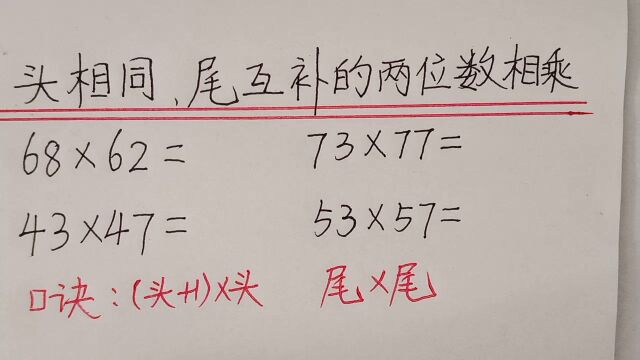 头相同、尾互补的两位数相乘
68×62= 73×77=
43×47= 53×57=
口诀：(头+1)×头 尾×尾